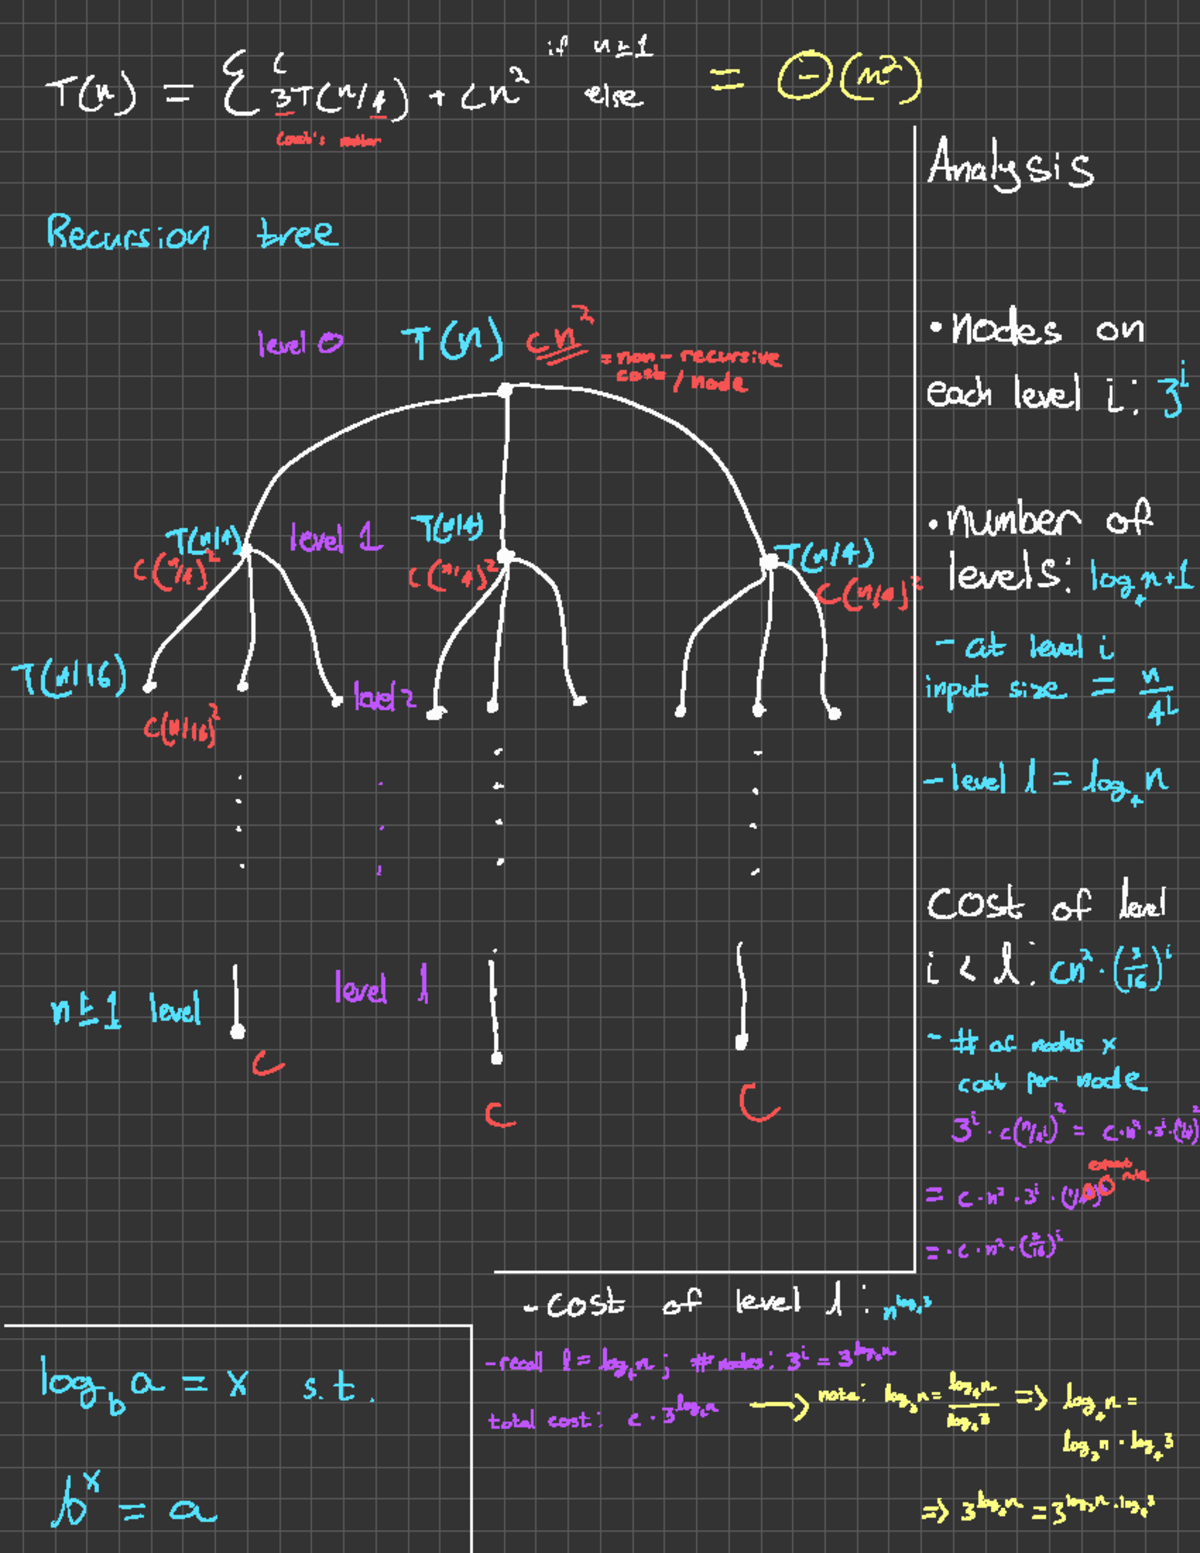 T(n) = { c if n=1
3T(n/4) + cn² else = Θ(n²)
Recursion tree
level 0 T(n) cn² = non-recursive
cost / node
T(n/4) level 1 T(n/4) T(n/4)
c(n/4)² c(n/4)² c(n/4)²
T(n/16) level 2
c(n/16)²
level l
n=1 level
c
c
c
Analysis
• nodes on
each level i: 3^i
• number of
levels: log₄n+1
- at level i
input size = n/4^i
- level l = log₄n
Cost of level
i < l: cn² · (3/16)^i
- # of nodes x
cost per node
3^i · c(n/4^i)² = c·n²·3^i·(1/4^i)²
= c·n²·3^i·
= ·c·n²·(3/16)^i
- cost of level l : n^log₄3
- recall l = log₄n ; # nodes: 3^i = 3^log₄n
total cost: c · 3^log₄n → note: log₃n = log₄n/log₄3 => log₄n =
log₃n · log₄3
=> 3^log₄n = 3^log₃n·log₄3
log_b a = x s.t.
b^x = a